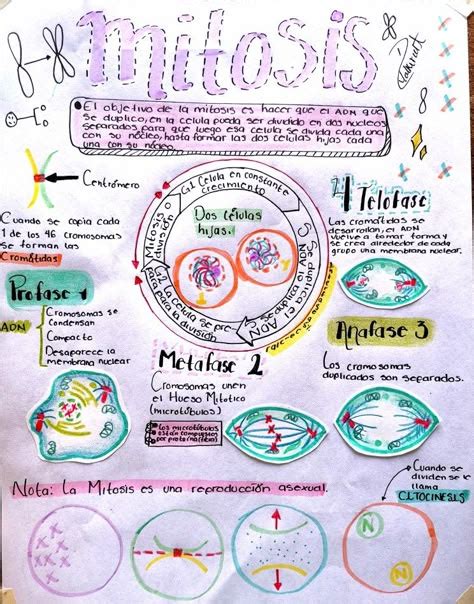 mitosis
El objetivo de la mitosis es hacer que el ADN que
se duplico, en la celula pueda ser dividido en dos nucleos
separados para que luego esa celula se divida cada una
con su núcleo, hasta formar las dos celulas hijas cada
una con su núcleo.
Centrómero
Cuando se copia cada
1 de los 46 cromosomas
se forman las
Cromátidas
G1 Celula en constante
crecimiento
S Se duplica el ADN
G2 La celula se pre-
para para la división
Mitosis o
división
Dos células
hijas.
4 Telofase
Las cromatidas se
desarrollan, el ADN
vuelve a tomar forma y
se crea alrededor de cada
grupo una membrana nuclear.
Profase 1
ADN
Cromosomas se
Condensan
Compacto
Desaparece la
membrana nuclear
Metafase 2
Cromosomas unen
el Hueso Mitotico
(microtúbulos)
Los microtúbulos
están compuestos
por proteína
Anafase 3
Los cromosomas
duplicados son separados.
Nota: La Mitosis es una reproducción asexual.
Cuando se
dividen se le
llama
CITOCINESIS
N
N